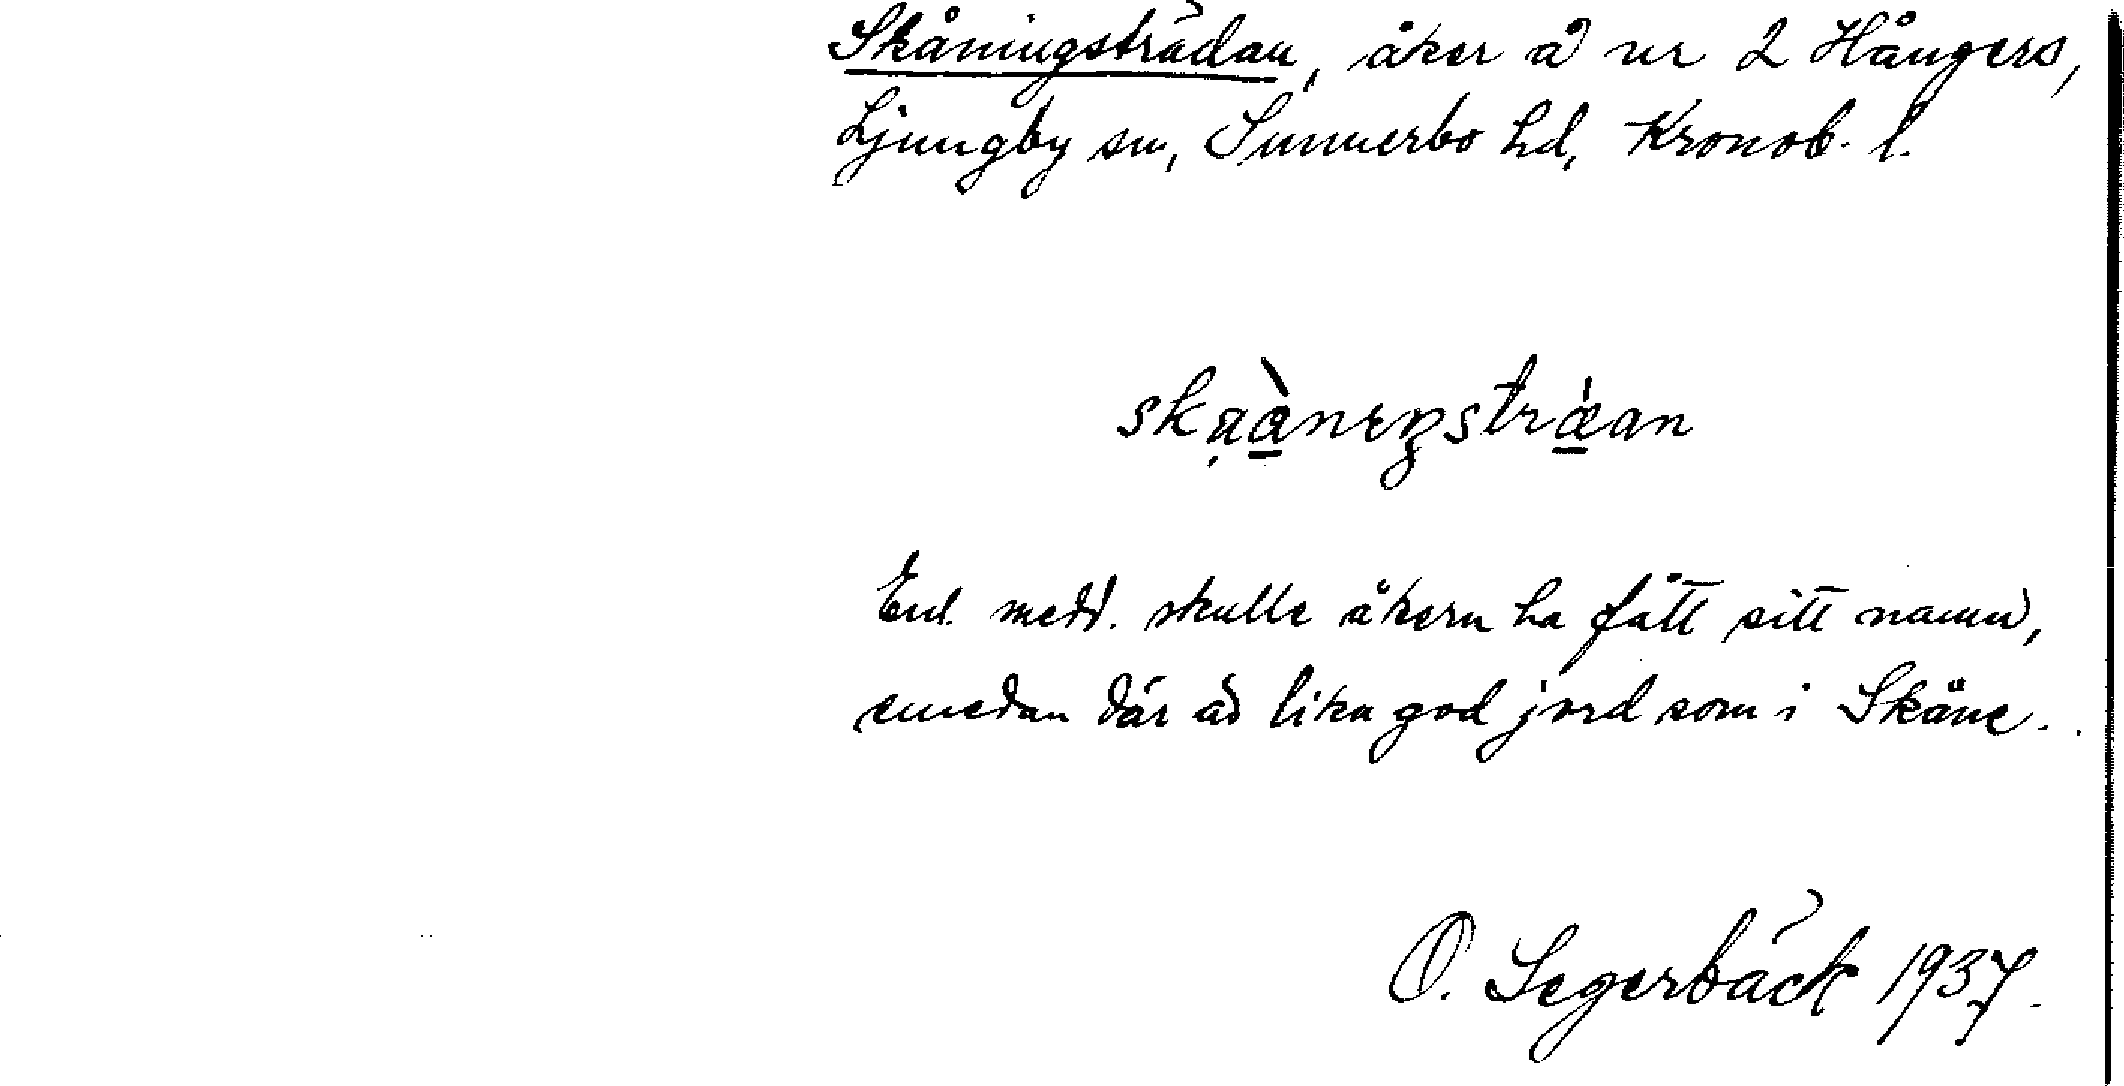 Skåningsträdan, åker å nr 2 Hångers,
Ljungby sn, Sunnerbo hd, Kronob. l.
skaànɪŋstræ̀an
Enl. medd. skulle åkern ha fått sitt namn,
emedan där är lika god jord som i Skåne.
O. Segerbäck 1937.